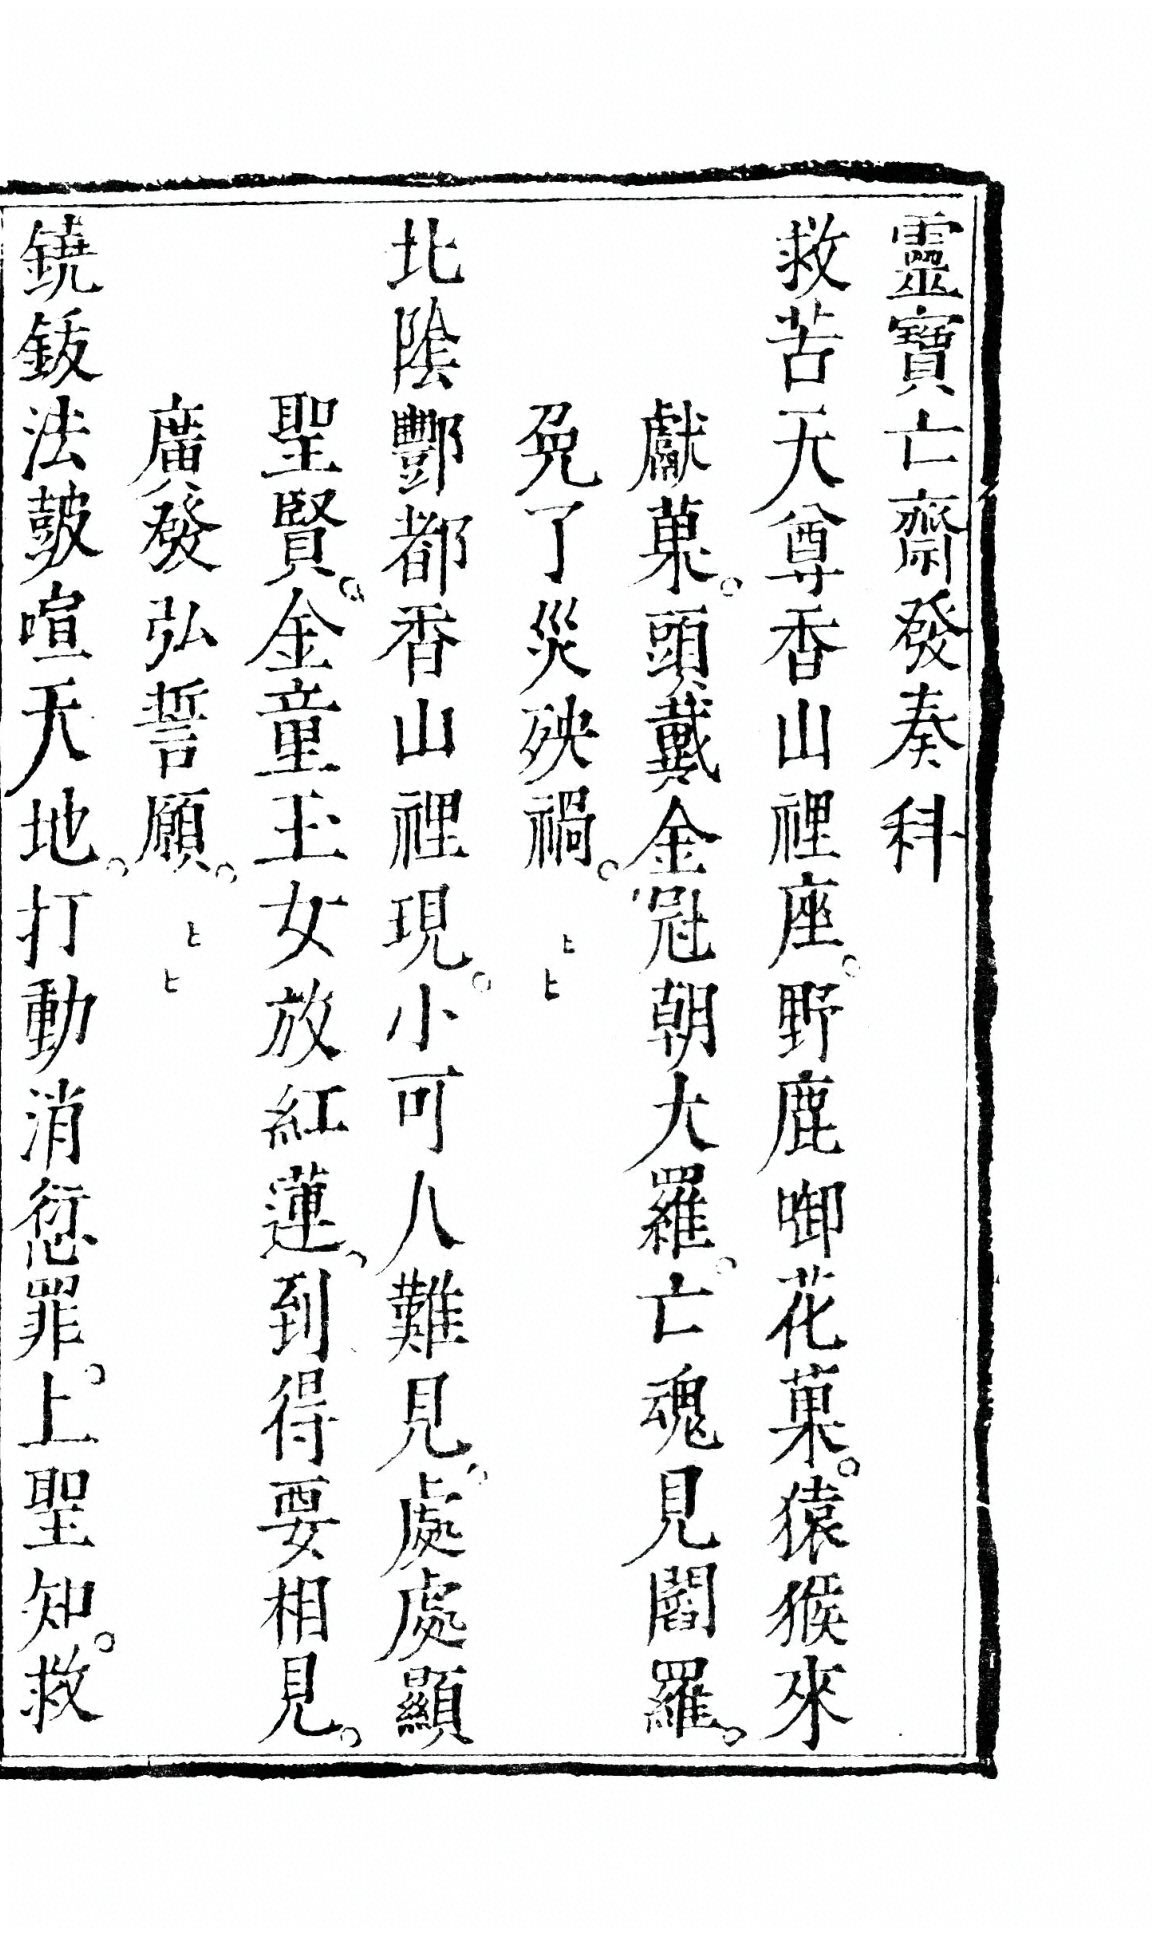 靈寶亡齋發奏科
救苦天尊香山裡座。野鹿啣花菓。猿猴來
獻菓。頭戴金冠朝大羅。亡魂見閻羅。
免了災殃禍。〻
北陰酆都香山裡現。小可人難見。處處顯
聖賢。金童玉女放紅蓮。到得要相見。
廣發弘誓願。〻
鐃鈸法鼓喧天地。打動消愆罪。上聖知。救